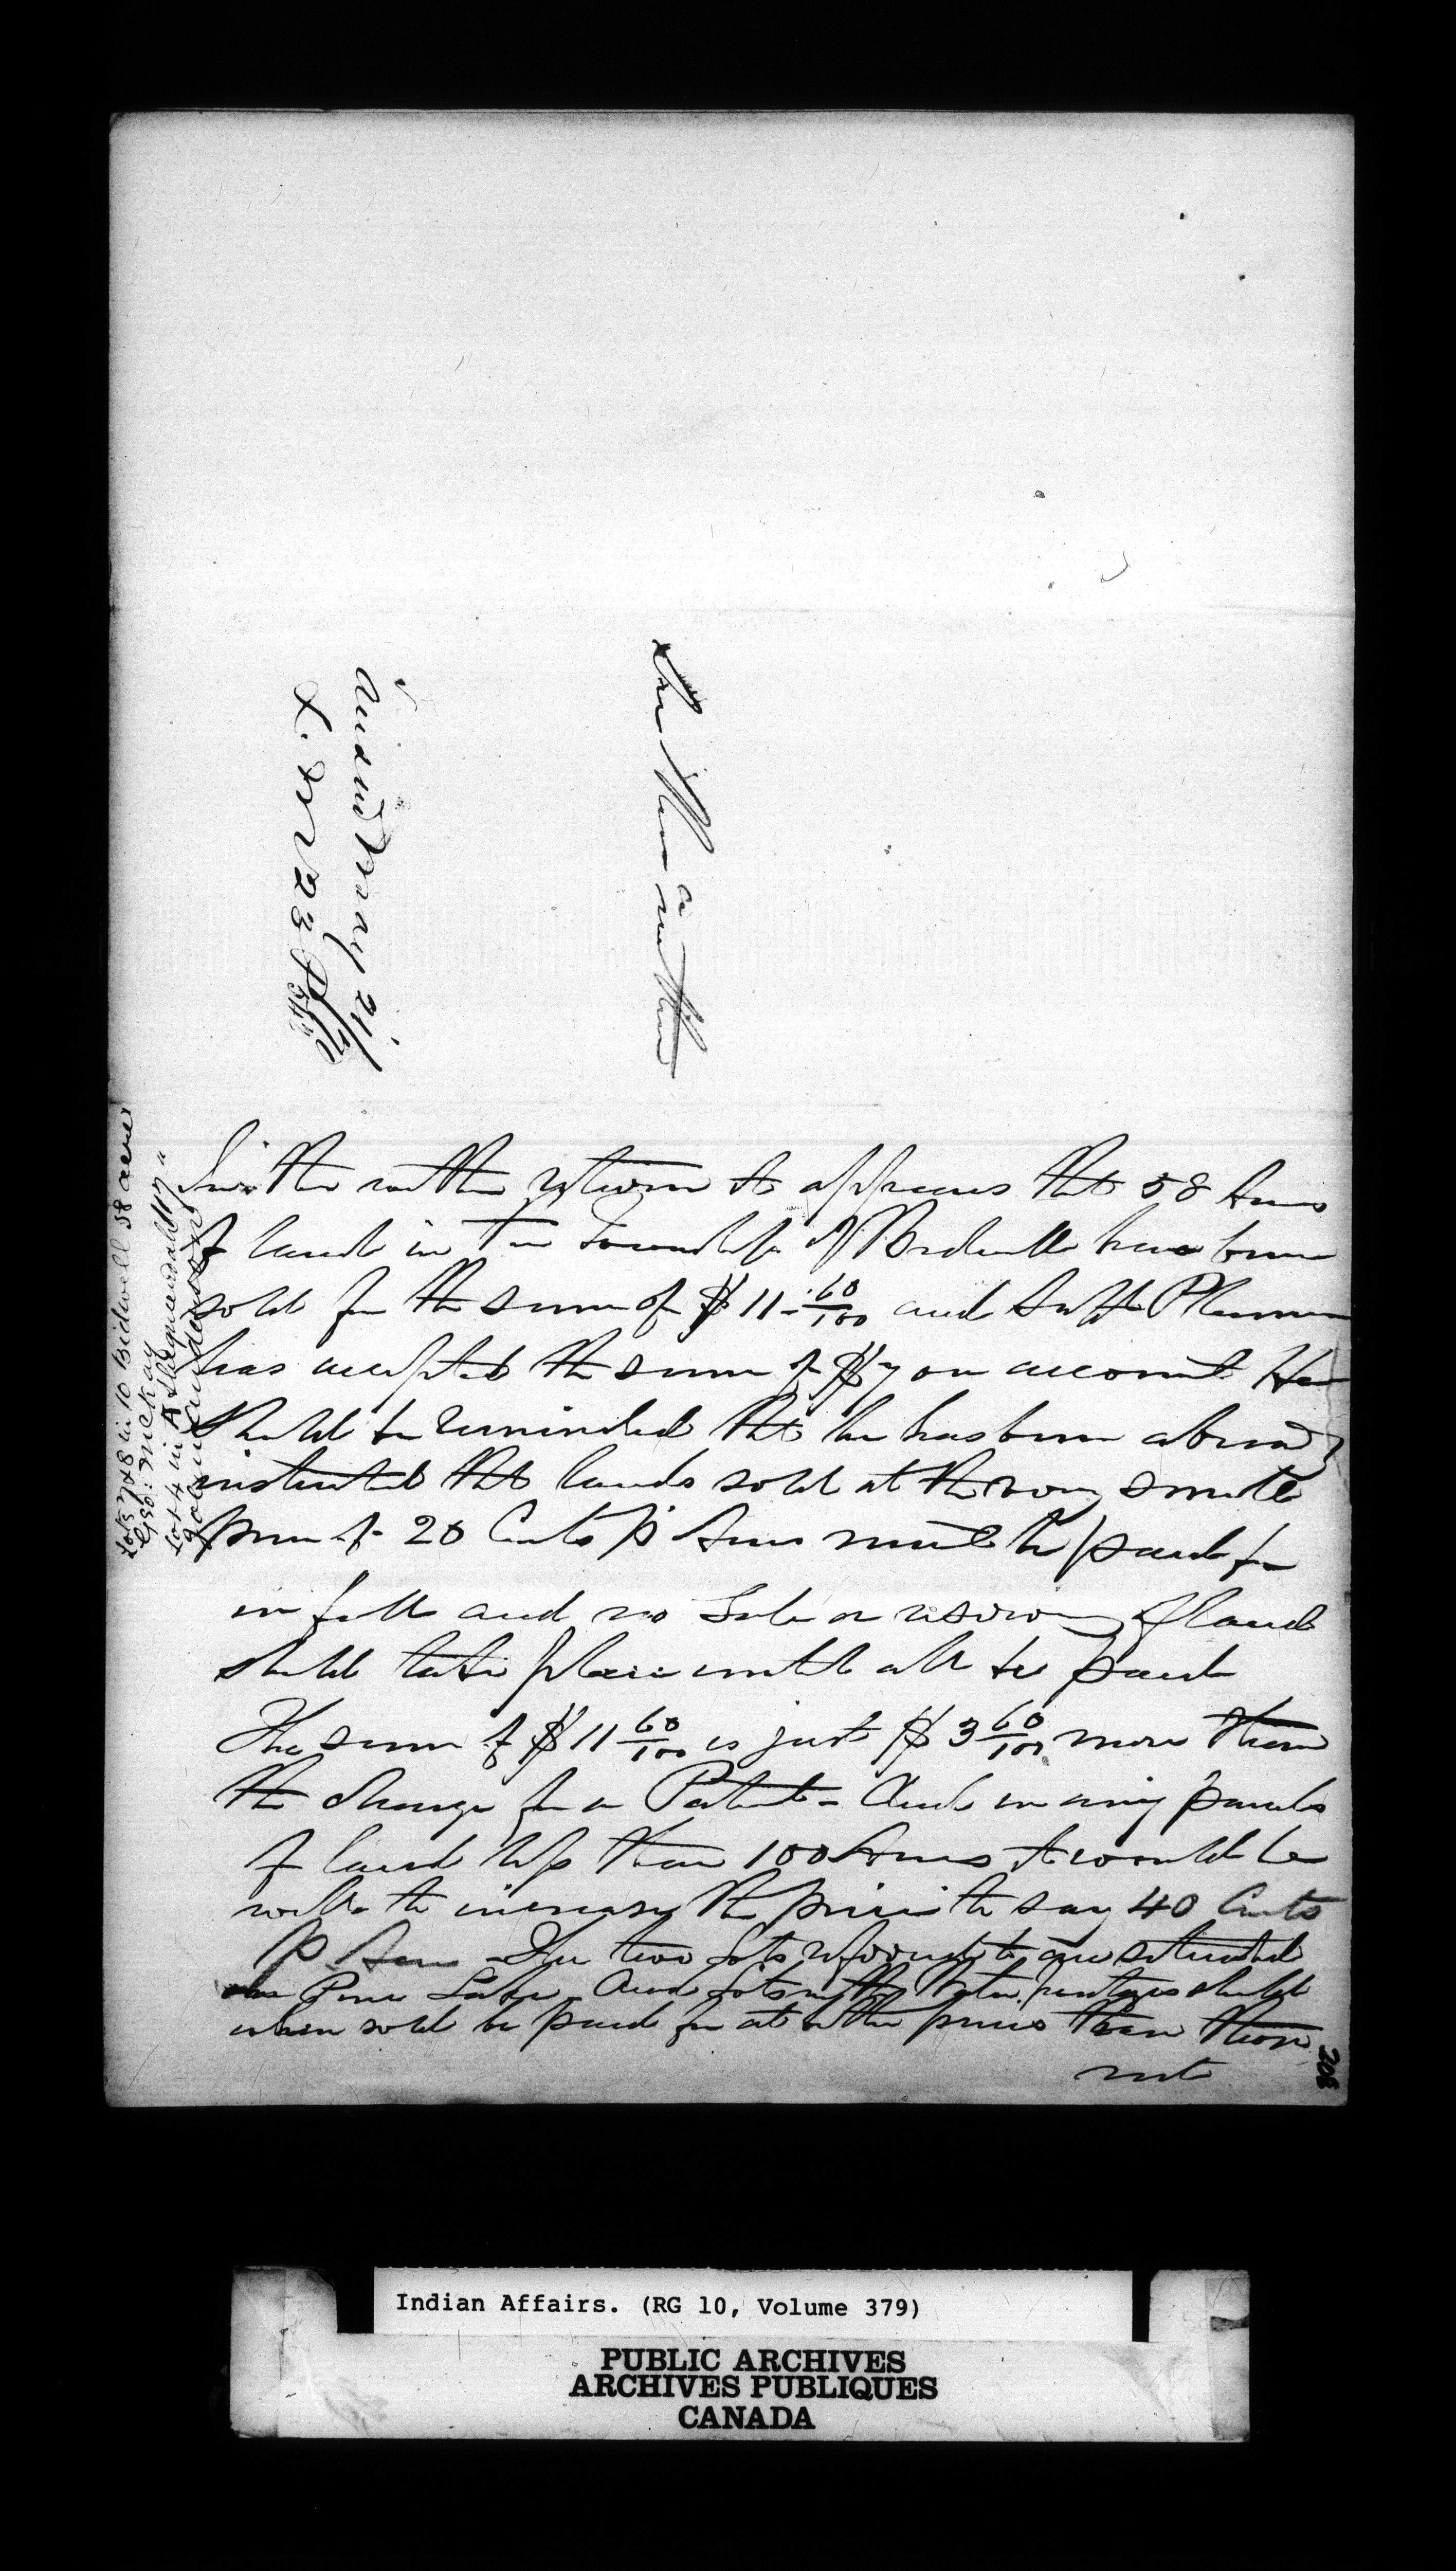 Ansd May 21/
L. Fr 23
In the within return it appears that 58 Acres
of land in the Township of Bidwell have been
sold for the sum of $11 60/100 and Supt Plummer
has accepted the sum of $7 on account He
should be reminded that he has been already
instructed that lands sold at the very small
price of 20 Cents p Acre must be paid for
in full and no Sale or of land
should take place until all be paid
The sum of $11 60/100 is just $3 60/100 more than
the charge for a Patent - And in any parcels
of land less than 100 Acres it would be
well to increase the price to say 40 Cents
p. Acre - The two Lots referred to are situated
on Lake - And Lots with Water frontages should
when sold be paid for at better prices than those
not
Lots 7 & 8 in 10 Bidwell 58 acres
Geo: McKay
Lot 4 in A Sheguiandah 117 "
208
Indian Affairs. (RG 10, Volume 379)
PUBLIC ARCHIVES
ARCHIVES PUBLIQUES
CANADA